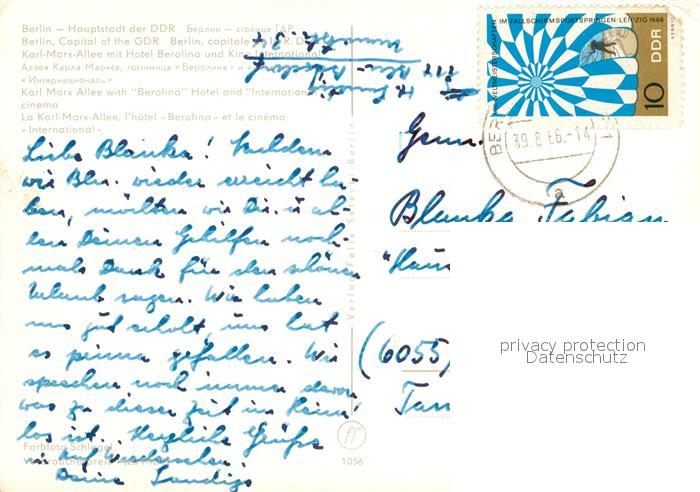 Berlin – Hauptstadt der DDR Берлин – столица ГДР
Berlin, Capital of the GDR Berlin, capitale
Karl-Marx-Allee mit Hotel Berolina und Kino
Аллея Карла Маркса, гостиница «Беролина» и
«Интернациональ»
Karl Marx Allee with "Berolina" Hotel and "International"
cinema
La Karl-Marx-Allee, l'hôtel «Berolina» et le cinéma
«International»
Liebe Blanka! Nachdem
wir Bln. wieder erreicht ha-
ben, möchten wir Dir u. al-
len Deinen Gehilfen noch-
mals Dank für den schönen
Urlaub sagen. Wir haben
uns gut erholt, uns hat
es prima gefallen. Wir
sprechen noch immer davon
was zu dieser Zeit im Heim
los ist. Herzliche Grüße
u. Auf Wiedersehen
Deine
Farbfoto Schlegel
1056
Verlag Felix Setecki, Berlin
WELTMEISTERSCHAFTEN IM FALLSCHIRMSPORTSPRINGEN · LEIPZIG 1966
DDR
10
BER
8.66.-14
a
Genn.
Blanka Fabian
"Haus
(6055)
Tan
privacy protection
Datenschutz